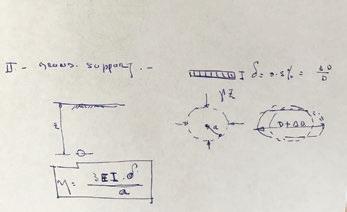 II - ground support. -
I δ = 0.5% = ΔD/D
γz
z
a
D+ΔD
M = 3EI·δ/a